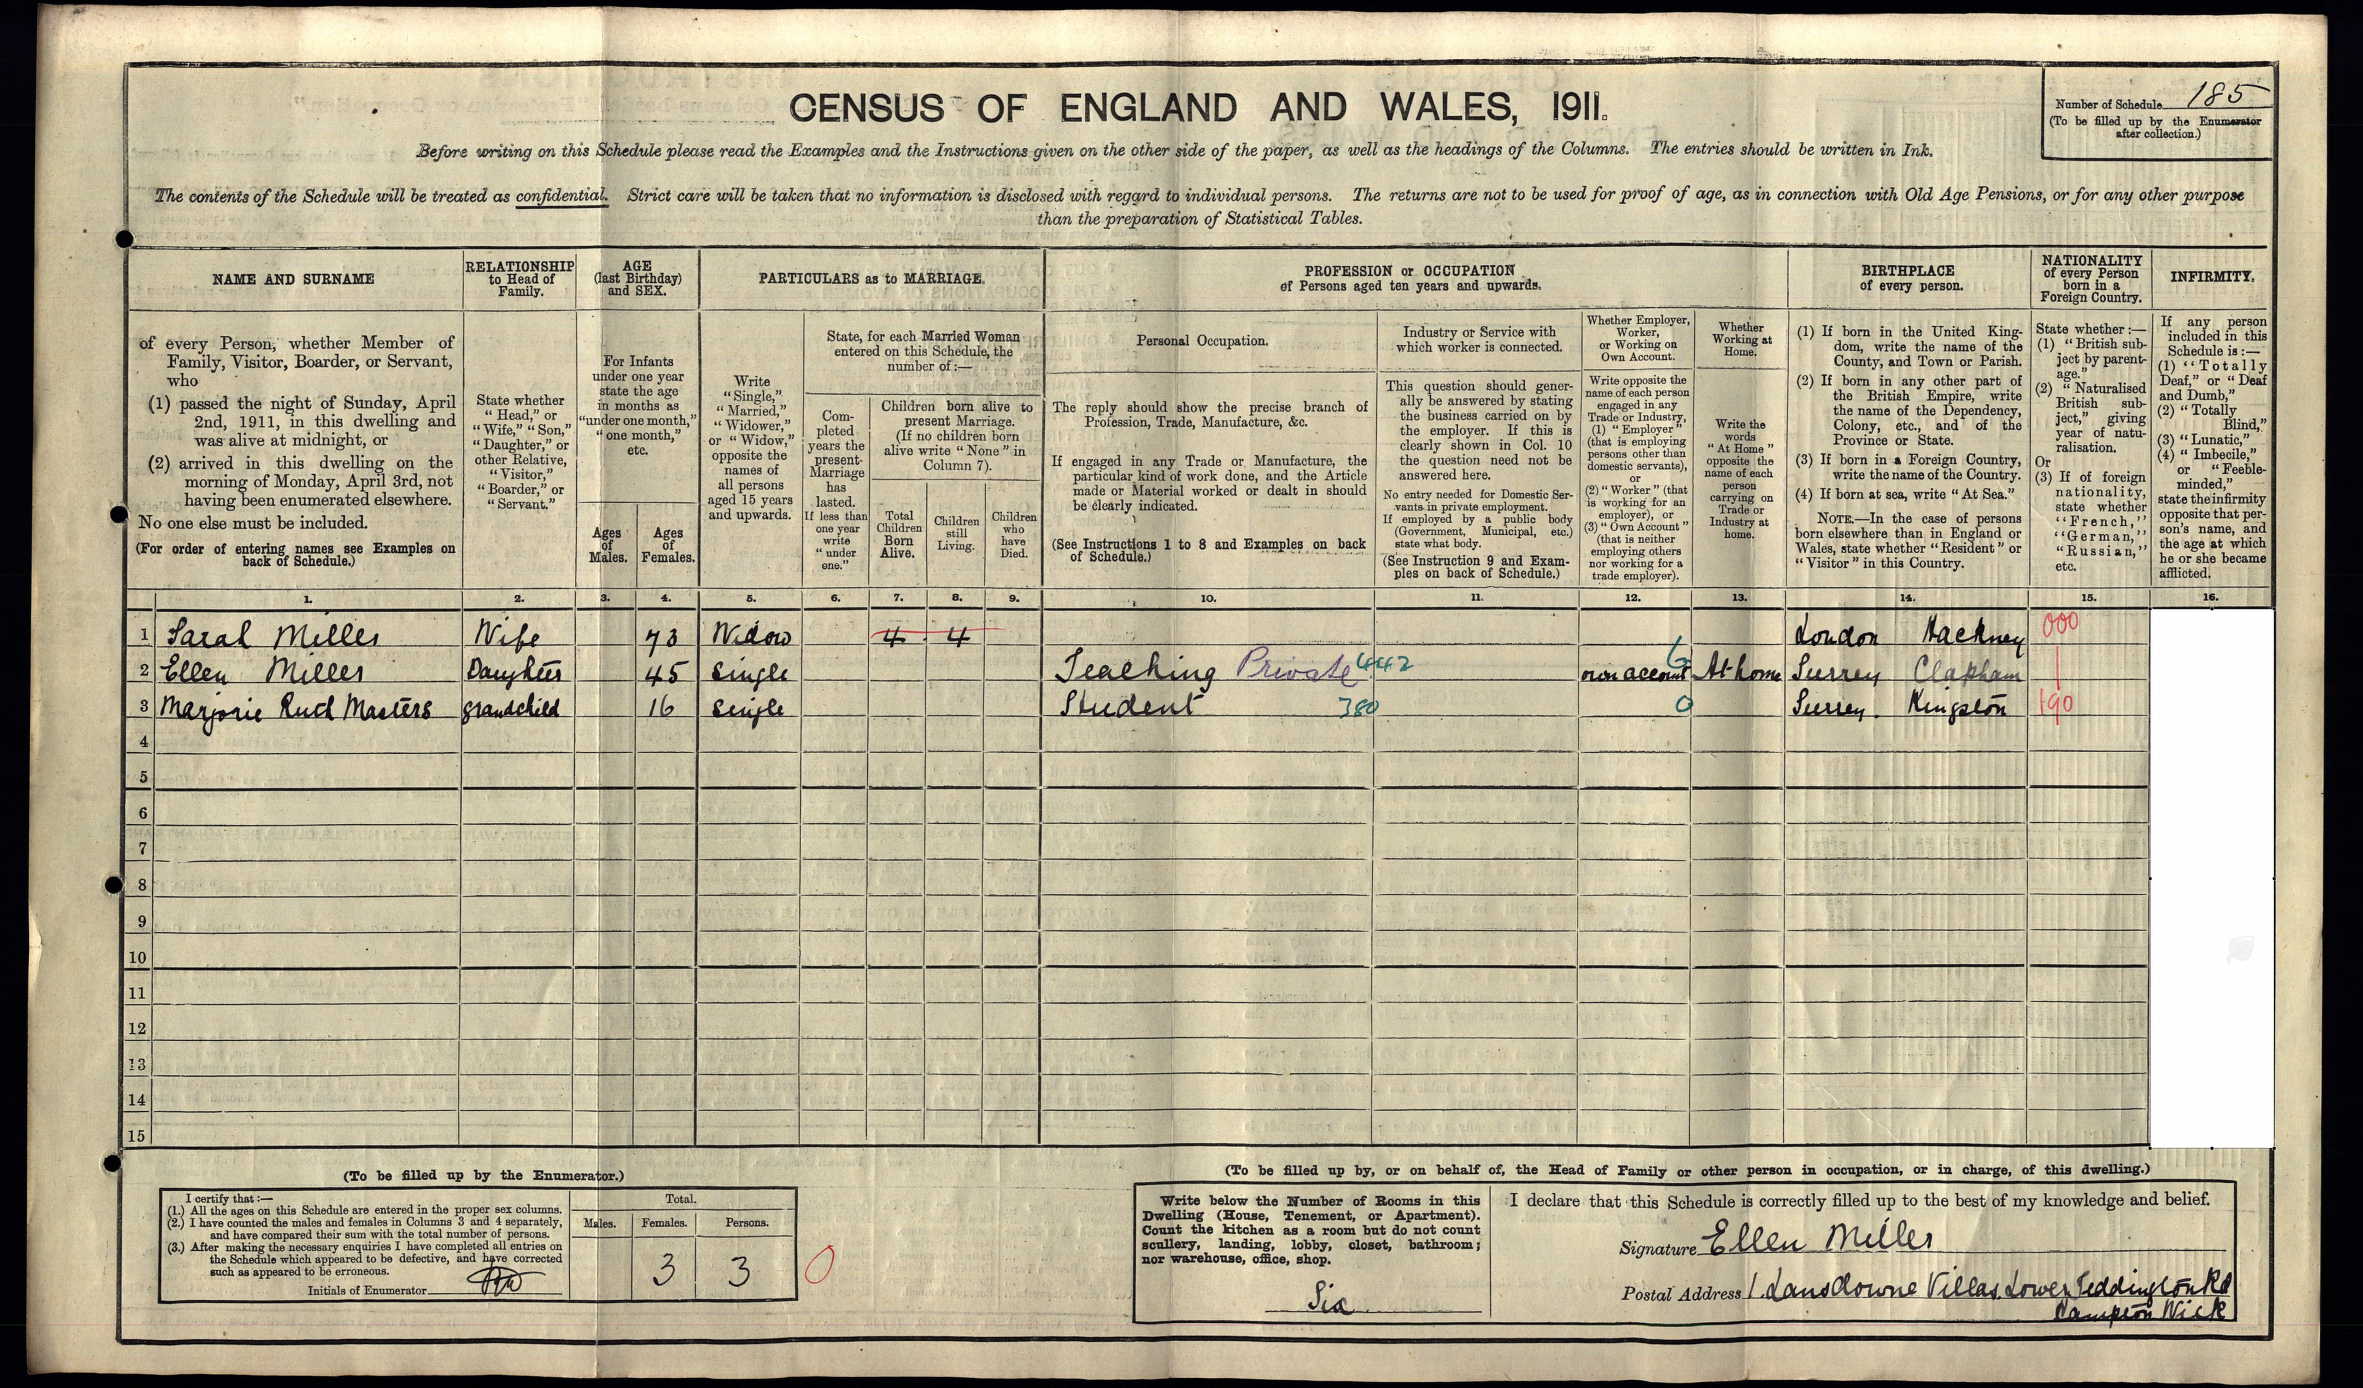 CENSUS OF ENGLAND AND WALES, 1911.
Number of Schedule 185
(To be filled up by the Enumerator
after collection.)
Before writing on this Schedule please read the Examples and the Instructions given on the other side of the paper, as well as the headings of the Columns. The entries should be written in Ink.
The contents of the Schedule will be treated as confidential. Strict care will be taken that no information is disclosed with regard to individual persons. The returns are not to be used for proof of age, as in connection with Old Age Pensions, or for any other purpose
than the preparation of Statistical Tables.
NAME AND SURNAME
of every Person, whether Member of
Family, Visitor, Boarder, or Servant,
who
(1) passed the night of Sunday, April
2nd, 1911, in this dwelling and
was alive at midnight, or
(2) arrived in this dwelling on the
morning of Monday, April 3rd, not
having been enumerated elsewhere.
No one else must be included.
(For order of entering names see Examples on
back of Schedule.)
RELATIONSHIP
to Head of
Family.
State whether
"Head," or
"Wife," "Son,"
"Daughter," or
other Relative,
"Visitor,"
"Boarder," or
"Servant."
AGE
(last Birthday)
and SEX.
For Infants
under one year
state the age
in months as
"under one month,"
"one month,"
etc.
Ages
of
Males.
Ages
of
Females.
PARTICULARS as to MARRIAGE.
Write
"Single,"
"Married,"
"Widower,"
or "Widow,"
opposite the
names of
all persons
aged 15 years
and upwards.
State, for each Married Woman
entered on this Schedule, the
number of:—
Com-
pleted
years the
present
Marriage
has
lasted.
If less than
one year
write
"under
one."
Children born alive to
present Marriage.
(If no children born
alive write "None" in
Column 7).
Total
Children
Born
Alive.
Children
still
Living.
Children
who
have
Died.
PROFESSION or OCCUPATION
of Persons aged ten years and upwards.
Personal Occupation.
The reply should show the precise branch of
Profession, Trade, Manufacture, &c.
If engaged in any Trade or Manufacture, the
particular kind of work done, and the Article
made or Material worked or dealt in should
be clearly indicated.
(See Instructions 1 to 8 and Examples on back
of Schedule.)
Industry or Service with
which worker is connected.
This question should gener-
ally be answered by stating
the business carried on by
the employer. If this is
clearly shown in Col. 10
the question need not be
answered here.
No entry needed for Domestic Ser-
vants in private employment.
If employed by a public body
(Government, Municipal, etc.)
state what body.
(See Instruction 9 and Exam-
ples on back of Schedule.)
Whether Employer,
Worker,
or Working on
Own Account.
Write opposite the
name of each person
engaged in any
Trade or Industry,
(1) "Employer"
(that is employing
persons other than
domestic servants),
or
(2) "Worker" (that
is working for an
employer), or
(3) "Own Account"
(that is neither
employing others
nor working for a
trade employer).
Whether
Working at
Home.
Write the
words
"At Home"
opposite the
name of each
person
carrying on
Trade or
Industry at
home.
BIRTHPLACE
of every person.
(1) If born in the United King-
dom, write the name of the
County, and Town or Parish.
(2) If born in any other part of
the British Empire, write
the name of the Dependency,
Colony, etc., and of the
Province or State.
(3) If born in a Foreign Country,
write the name of the Country.
(4) If born at sea, write "At Sea."
NOTE.—In the case of persons
born elsewhere than in England or
Wales, state whether "Resident" or
"Visitor" in this Country.
NATIONALITY
of every Person
born in a
Foreign Country.
State whether:—
(1) "British sub-
ject by parent-
age."
(2) "Naturalised
British sub-
ject," giving
year of natu-
ralisation.
Or
(3) If of foreign
nationality,
state whether
"French,"
"German,"
"Russian,"
etc.
INFIRMITY.
If any person
included in this
Schedule is:—
(1) "Totally
Deaf," or "Deaf
and Dumb,"
(2) "Totally
Blind,"
(3) "Lunatic,"
(4) "Imbecile,"
or "Feeble-
minded,"
state the infirmity
opposite that per-
son's name, and
the age at which
he or she became
afflicted.
1. 2. 3. 4. 5. 6. 7. 8. 9. 10. 11. 12. 13. 14. 15. 16.
1 Sarah Miller Wife 73 Widow 4 4 London Hackney 000
2 Ellen Miller Daughter 45 Single Teaching Private 442 own account At home Surrey Clapham
3 Marjorie Ruth Masters grandchild 16 Single Student 380 0 Surrey. Kingston 190
4
5
6
7
8
9
10
11
12
13
14
15
(To be filled up by the Enumerator.)
I certify that:—
(1.) All the ages on this Schedule are entered in the proper sex columns.
(2.) I have counted the males and females in Columns 3 and 4 separately,
and have compared their sum with the total number of persons.
(3.) After making the necessary enquiries I have completed all entries on
the Schedule which appeared to be defective, and have corrected
such as appeared to be erroneous.
Initials of Enumerator
Total.
Males. Females. Persons.
3 3 0
(To be filled up by, or on behalf of, the Head of Family or other person in occupation, or in charge, of this dwelling.)
Write below the Number of Rooms in this
Dwelling (House, Tenement, or Apartment).
Count the kitchen as a room but do not count
scullery, landing, lobby, closet, bathroom;
nor warehouse, office, shop.
Six
I declare that this Schedule is correctly filled up to the best of my knowledge and belief.
Signature Ellen Miller
Postal Address 1 Lansdowne Villas. Lower Teddington Rd
Hampton Wick